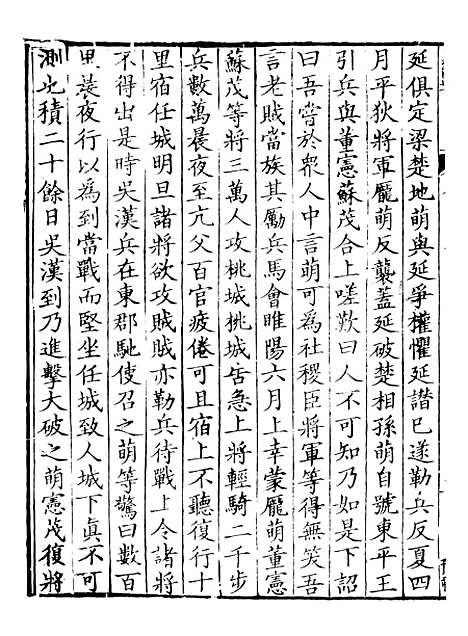 延俱定梁楚地萌與延爭權懼延譖已遂勒兵反夏四
月平狄將軍龐萌反襲蓋延破楚相孫萌自號東平王
引兵與董憲蘇茂合上嗟歎曰人不可知乃如是下詔
曰吾嘗於衆人中言萌可為社稷臣將軍等得無笑吾
言老賊當族其勵兵馬會睢陽六月上幸蒙龐萌董憲
蘇茂等將三萬人攻桃城桃城告急上將輕騎二千步
兵數萬晨夜至亢父百官疲倦可且宿上不聽復行十
里宿任城明旦諸將欲攻賊賊亦勒兵待戰上令諸將
不得出是時吳漢兵在東郡馳使召之萌等驚曰數百
里晨夜行以為到當戰而堅坐任城致人城下真不可
測也積二十餘日吳漢到乃進擊大破之萌憲茂復將